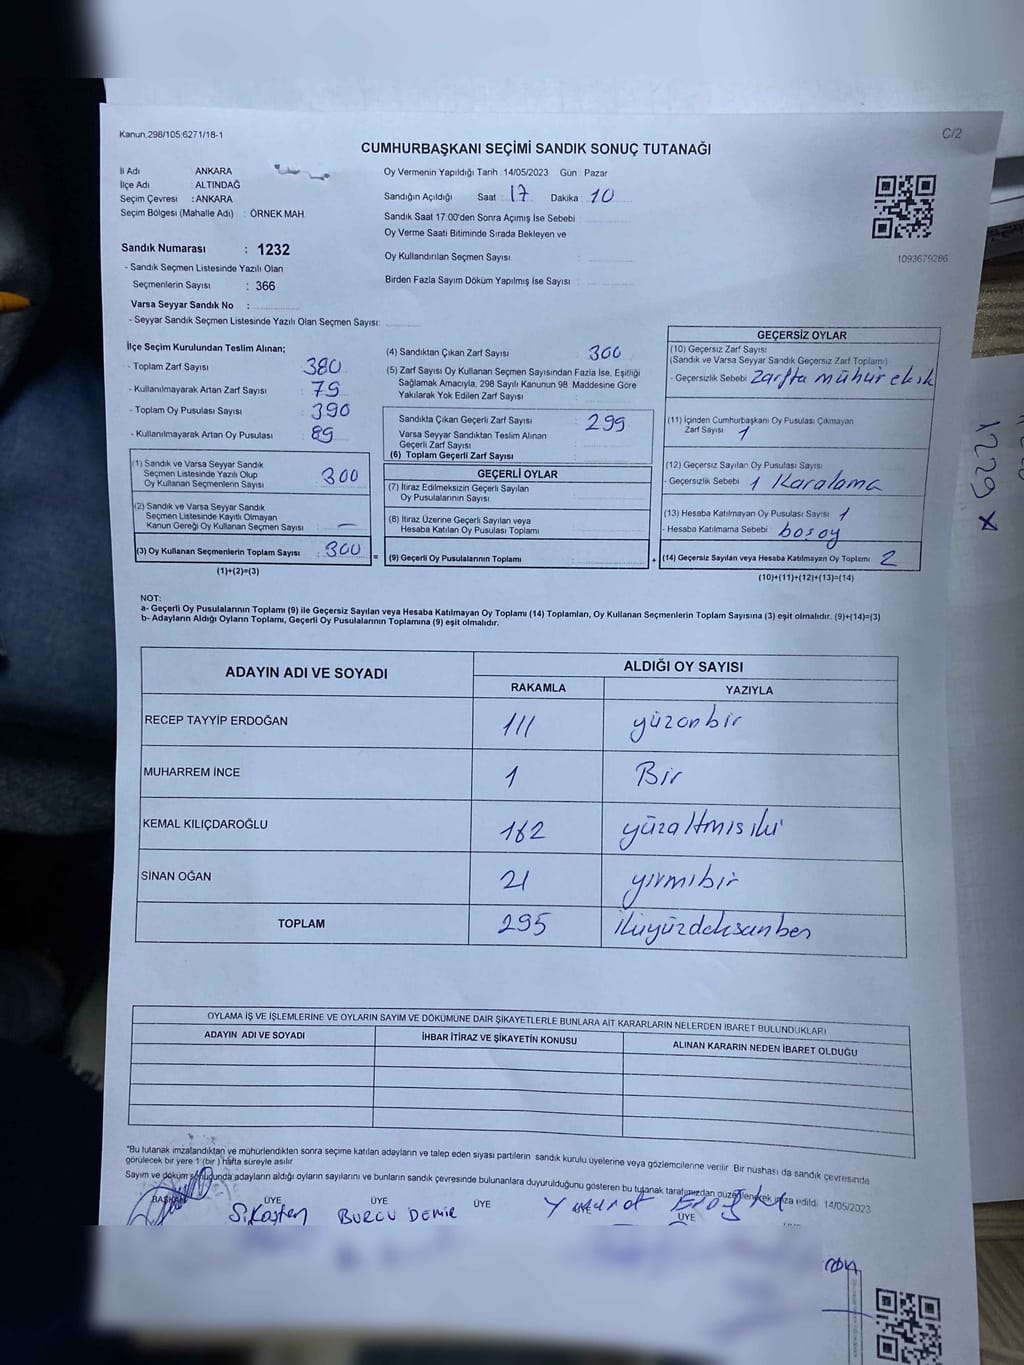 Kanun.298/105;6271/18-1
C/2
CUMHURBAŞKANI SEÇİMİ SANDIK SONUÇ TUTANAĞI
İl Adı ANKARA
İlçe Adı : ALTINDAĞ
Seçim Çevresi : ANKARA
Seçim Bölgesi (Mahalle Adı) : ÖRNEK MAH.
Oy Vermenin Yapıldığı Tarih : 14/05/2023 Gün Pazar
Sandığın Açıldığı Saat 17 Dakika 10
Sandık Saat 17:00'den Sonra Açımış İse Sebebi
Oy Verme Saati Bitiminde Sırada Bekleyen ve
Oy Kullandırılan Seçmen Sayısı :
Birden Fazla Sayım Döküm Yapılmış İse Sayısı :
1093679286
Sandık Numarası : 1232
- Sandık Seçmen Listesinde Yazılı Olan
Seçmenlerin Sayısı : 366
Varsa Seyyar Sandık No :
- Seyyar Sandık Seçmen Listesinde Yazılı Olan Seçmen Sayısı:
İlçe Seçim Kurulundan Teslim Alınan;
- Toplam Zarf Sayısı : 380
- Kullanılmayarak Artan Zarf Sayısı : 79
- Toplam Oy Pusulası Sayısı : 390
- Kullanılmayarak Artan Oy Pusulası : 89
(1) Sandık ve Varsa Seyyar Sandık
Seçmen Listesinde Yazılı Olup
Oy Kullanan Seçmenlerin Sayısı : 300
(2) Sandık ve Varsa Seyyar Sandık
Seçmen Listesinde Kayıtlı Olmayan
Kanun Gereği Oy Kullanan Seçmen Sayısı : —
(3) Oy Kullanan Seçmenlerin Toplam Sayısı : 300
(1)+(2)=(3)
(4) Sandıktan Çıkan Zarf Sayısı : 300
(5) Zarf Sayısı Oy Kullanan Seçmen Sayısından Fazla İse, Eşitliği
Sağlamak Amacıyla, 298 Sayılı Kanunun 98. Maddesine Göre
Yakılarak Yok Edilen Zarf Sayısı :
Sandıkta Çıkan Geçerli Zarf Sayısı : 299
Varsa Seyyar Sandıktan Teslim Alınan
Geçerli Zarf Sayısı
(6) Toplam Geçerli Zarf Sayısı
GEÇERLİ OYLAR
(7) İtiraz Edilmeksizin Geçerli Sayılan
Oy Pusulalarının Sayısı
(8) İtiraz Üzerine Geçerli Sayılan veya
Hesaba Katılan Oy Pusulası Toplamı
= (9) Geçerli Oy Pusulalarının Toplamı +
GEÇERSİZ OYLAR
(10) Geçersiz Zarf Sayısı
(Sandık ve Varsa Seyyar Sandık Geçersiz Zarf Toplamı)
- Geçersizlik Sebebi Zarfta mühür eksik
(11) İçinden Cumhurbaşkanı Oy Pusulası Çıkmayan
Zarf Sayısı 1
(12) Geçersiz Sayılan Oy Pusulası Sayısı
- Geçersizlik Sebebi 1 Karalama
(13) Hesaba Katılmayan Oy Pusulası Sayısı 1
- Hesaba Katılmama Sebebi boş oy
(14) Geçersiz Sayılan veya Hesaba Katılmayan Oy Toplamı 2
(10)+(11)+(12)+(13)=(14)
NOT:
a- Geçerli Oy Pusulalarının Toplamı (9) ile Geçersiz Sayılan veya Hesaba Katılmayan Oy Toplamı (14) Toplamları, Oy Kullanan Seçmenlerin Toplam Sayısına (3) eşit olmalıdır. (9)+(14)=(3)
b- Adayların Aldığı Oyların Toplamı, Geçerli Oy Pusulalarının Toplamına (9) eşit olmalıdır.
ADAYIN ADI VE SOYADI
ALDIĞI OY SAYISI
RAKAMLA YAZIYLA
RECEP TAYYİP ERDOĞAN 111 yüzonbir
MUHARREM İNCE 1 Bir
KEMAL KILIÇDAROĞLU 162 yüzaltmışiki
SİNAN OĞAN 21 yirmibir
TOPLAM 295 ikiyüzdoksanbeş
OYLAMA İŞ VE İŞLEMLERİNE VE OYLARIN SAYIM VE DÖKÜMÜNE DAİR ŞİKAYETLERLE BUNLARA AİT KARARLARIN NELERDEN İBARET BULUNDUKLARI
ADAYIN ADI VE SOYADI İHBAR İTİRAZ VE ŞİKAYETİN KONUSU ALINAN KARARIN NEDEN İBARET OLDUĞU
*Bu tutanak imzalandıktan ve mühürlendikten sonra seçime katılan adayların ve talep eden siyasi partilerin sandık kurulu üyelerine veya gözlemcilerine verilir. Bir nushası da sandık çevresinde
görülecek bir yere 1 (bir) hafta süreyle asılır.
Sayım ve döküm sonuçlarında adayların aldığı oyların sayılarını ve bunların sandık çevresinde bulunanlara duyurulduğunu gösteren bu tutanak tarafımızdan düzenlenerek imza edildi. 14/05/2023
BAŞKAN ÜYE ÜYE ÜYE ÜYE ÜYE
S.Kaşten BURCU DEMİR
1229 x